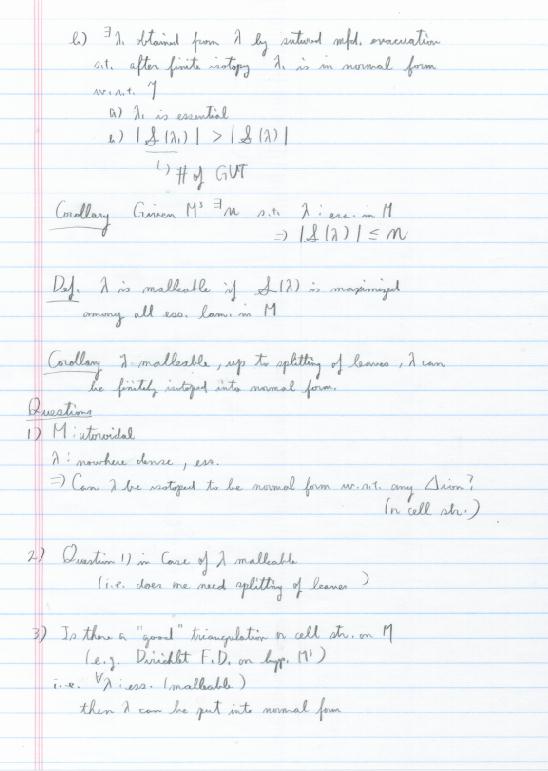 b) ∃λ₁ obtained from λ by sutured mfd. evacuation
s.t. after finite isotopy λ₁ is in normal form
w.r.t. η
a) λ₁ is essential
b) |𝒮(λ₁)| > |𝒮(λ)|
↳ # of GUT
Corollary Given M³ ∃n s.t. λ : ess. in M
⇒ |𝒮(λ)| ≤ n
Def. λ is malleable if 𝒮(λ) is maximized
among all ess. lam. in M
Corollary λ malleable, up to splitting of leaves, λ can
be finitely isotoped into normal form.
Questions
1) M : atoroidal
λ : nowhere dense, ess.
⇒ Can λ be isotoped to be normal form w.r.t. any Δion?
(or cell str.)
2) Question 1) in Case of λ malleable
(i.e. does one need splitting of leaves )
3) Is there a "good" triangulation or cell str. on M
(e.g. Dirichlet F.D. on hyp. M³)
i.e. ∀λ : ess. (malleable)
then λ can be put into normal form